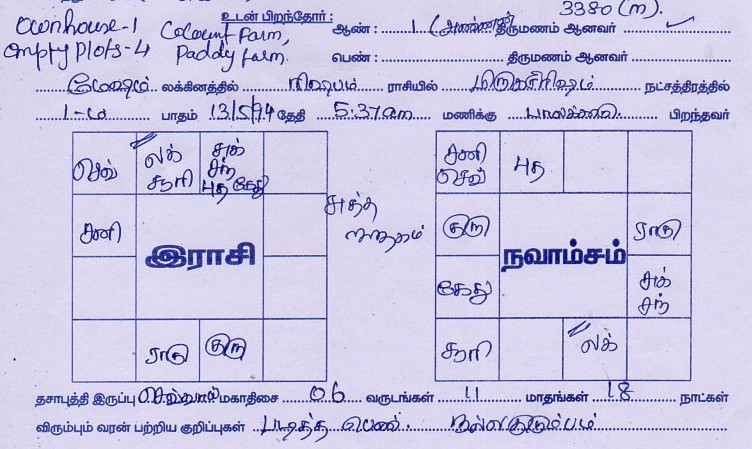 3380 (m).
ownhouse-1
empty Plots-4
Coconut Farm,
Paddy farm.
உடன் பிறந்தோர்: ஆண்: 1 (அண்ணன்) திருமணம் ஆனவர் ✓
பெண்: திருமணம் ஆனவர்
மேஷம் லக்கினத்தில் ரிஷபம் ராசியில் மிருகசீரிஷம் நட்சத்திரத்தில்
1-ம் பாதம் 13/5/94 தேதி 5.37am மணிக்கு பிறந்தவர்
செவ்
லக்
சூரி
சுக்
சந்
புத கேது
சனி
இராசி
ராகு
குரு
சுத்த
ஜாதகம்
சனி
செவ்
புத
குரு
நவாம்சம்
ராகு
கேது
சுக்
சந்
சூரி
லக்
தசாபுத்தி இருப்பு செவ்வாய் மகாதிசை 06 வருடங்கள் 11 மாதங்கள் 18 நாட்கள்
விரும்பும் வரன் பற்றிய குறிப்புகள் படித்த பெண். நல்ல குடும்பம்